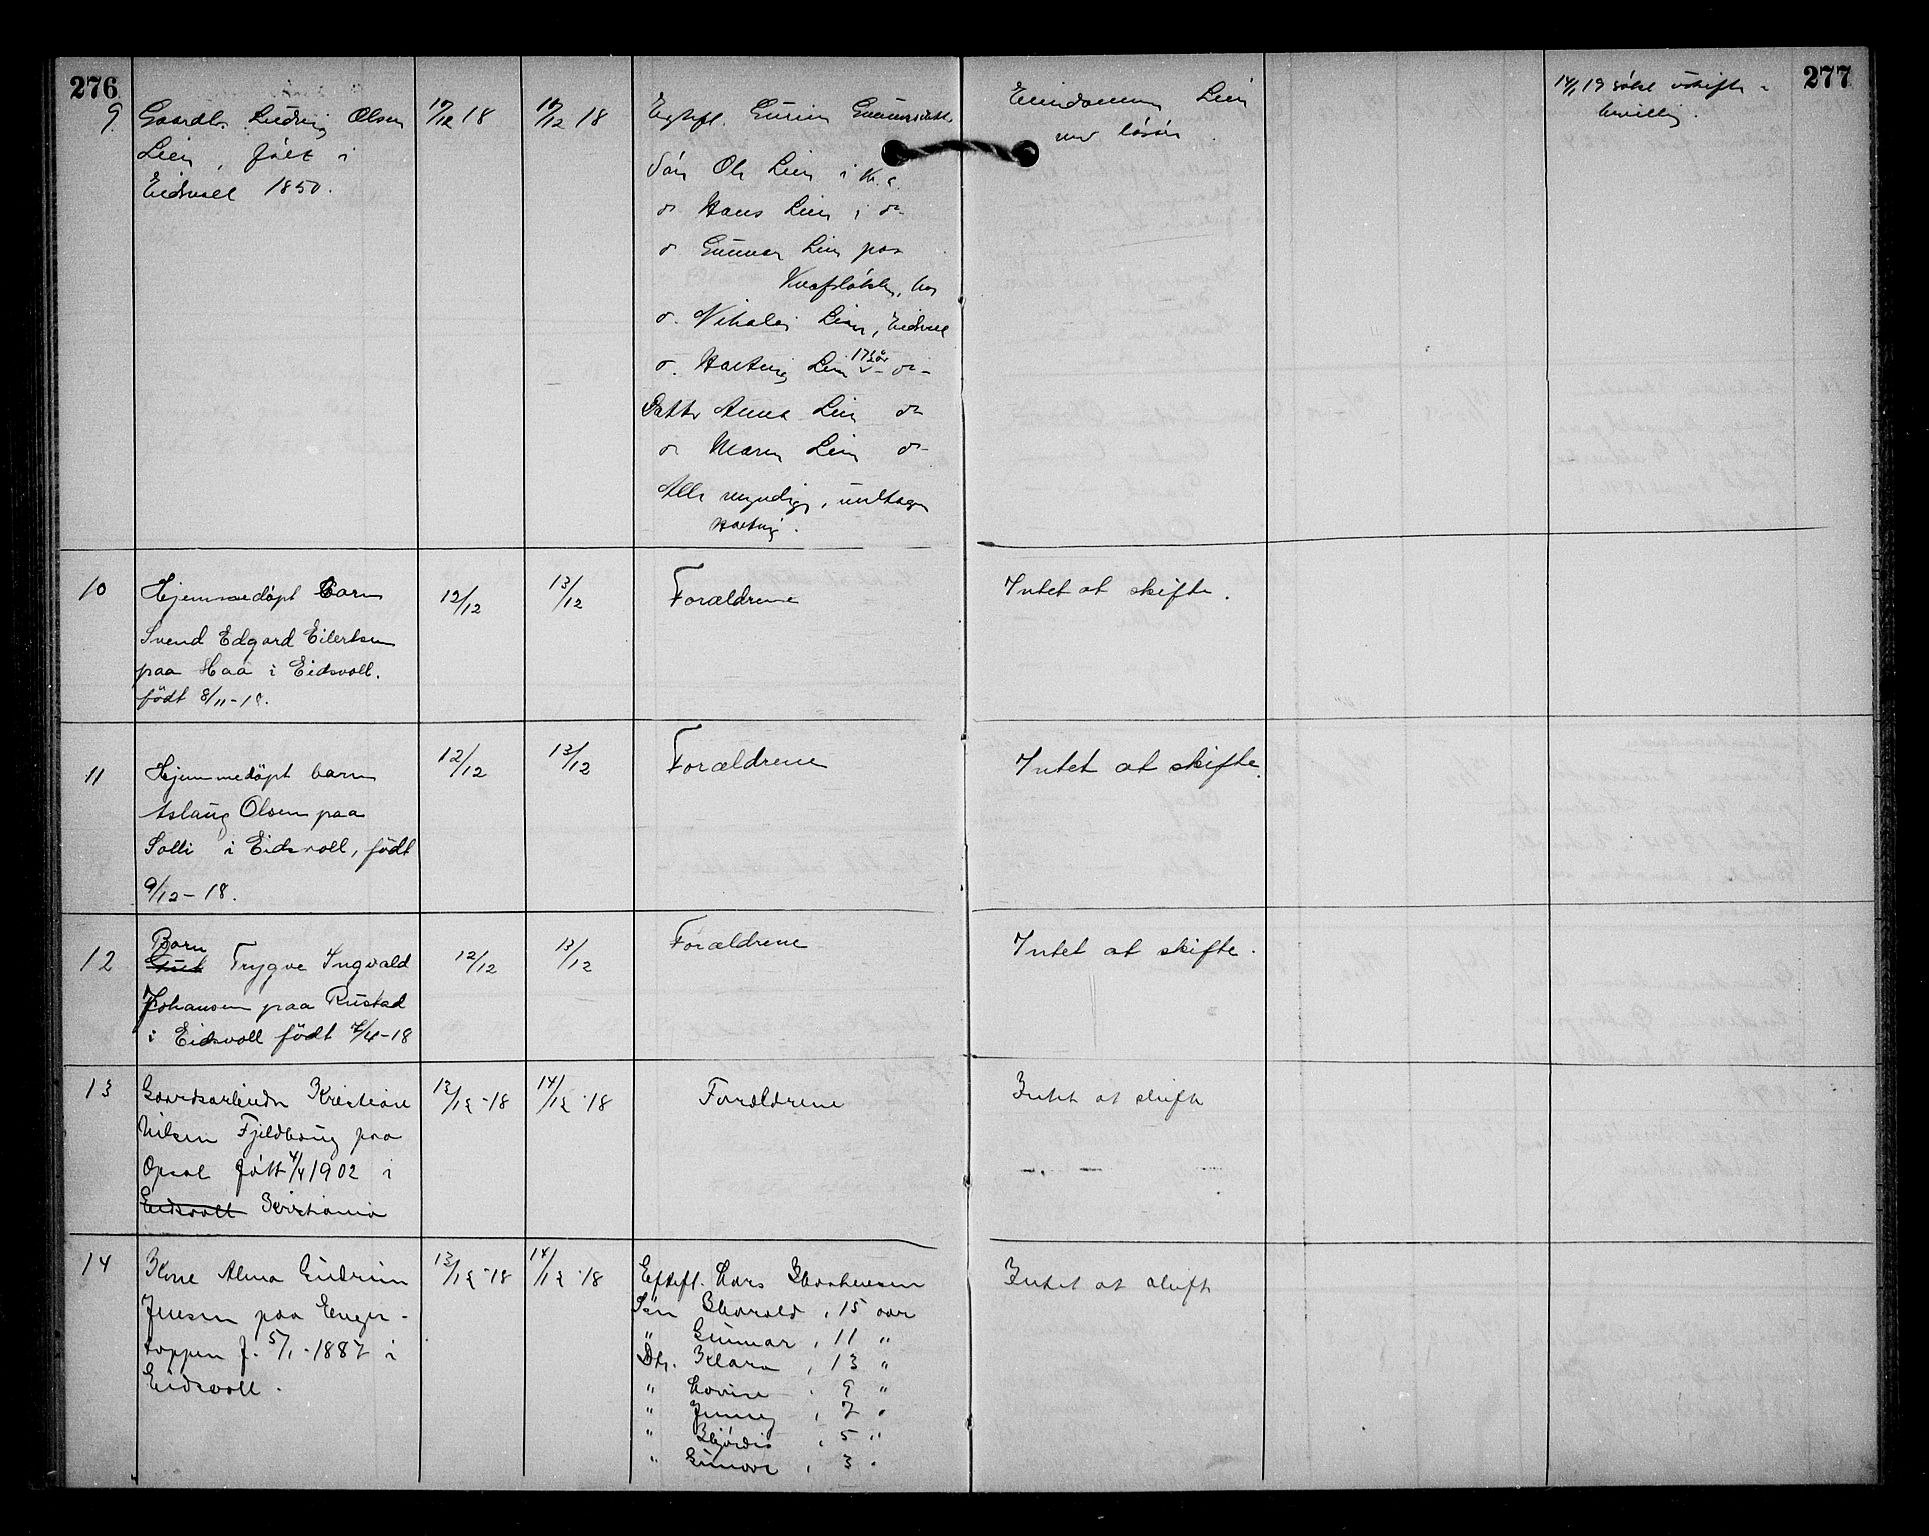 276
277
9
Gaardbr. Ludvig Olsen
Lien, født i
Eidsvoll 1850.
10/12 18
10/12 18
Egtef.
Søn Ole Lien i Kr.a.
do Hans Lien i do
do Gunnar Lien paa
do. Nikolai Lien, Eidsvoll
do. Hartvig Lien 17½ år - do -
Datter Anna Lien do
do Maren Lien do
Alle myndige, undtagen
Hartvig.
Eiendommen Lien
med løsøre.
14/1 19 uskifte
bevilling.
10
Hjemmedøpt barn
Svend Edgard Eilertsen
paa Haa i Eidsvoll.
født 8/11-18.
12/12
13/12
Forældrene
Intet at skifte.
11
Hjemmedøpt barn
Aslaug Olsen paa
Solli i Eidsvoll, født
9/12-18.
12/12
13/12
Forældrene
Intet at skifte.
12
Barn
Trygve Ingvald
Johansen paa Rustad
i Eidsvoll født
12/12
13/12
Forældrene
Intet at skifte.
13
Gaardsarbeider Kristian
Nilsen Fjeldhaug paa
Opsal født 4/4 1902 i
Eidsvoll Kristiania
13/12-18
14/12-18
Forældrene
Intet at skifte
14
Kone Alma Gudrun
Jensen paa Enger-
toppen f. 5/1-1887 i
Eidsvoll.
13/12-18
14/12-18
Egtef. Lars
Søn Harald, 15 aar
" Gunnar, 11 "
Dtr. Klara, 13 "
" Lovise, 9 "
" Jenny, 7 "
" Hjørdis, 5 "
" Gunvor, 3 "
Intet at skifte